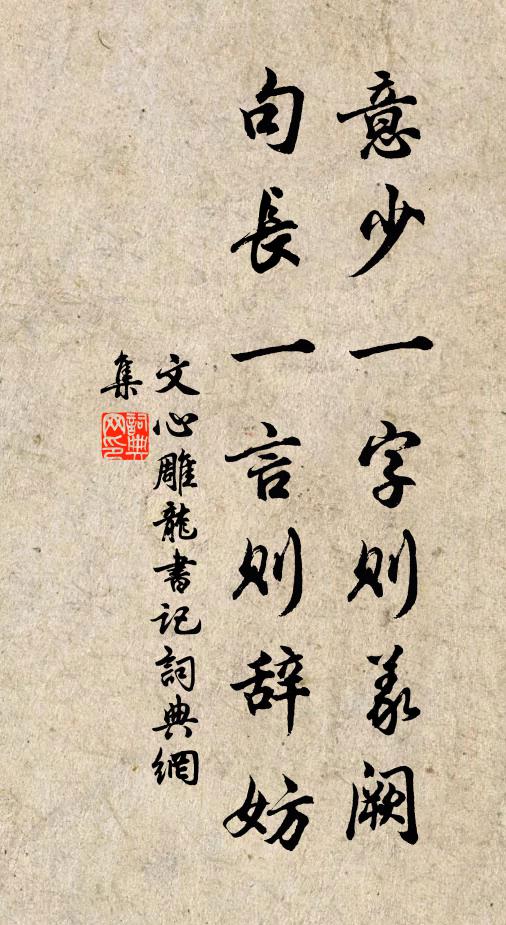 意少一字则义阙
句長一言则辞妨
文心雕龍書記詞典網
集
詞典网印